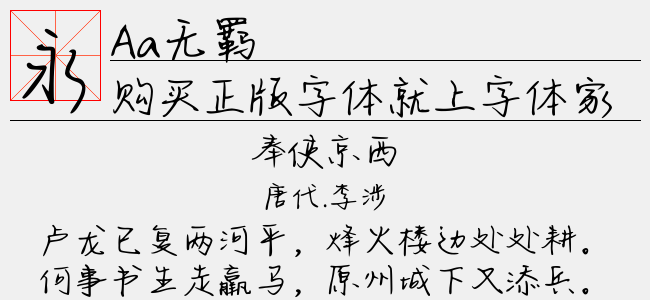 永
Aa无羁
购买正版字体就上字体家
奉使京西
唐代.李涉
卢龙已复两河平，烽火楼边处处耕。
何事书生走羸马，原州城下又添兵。